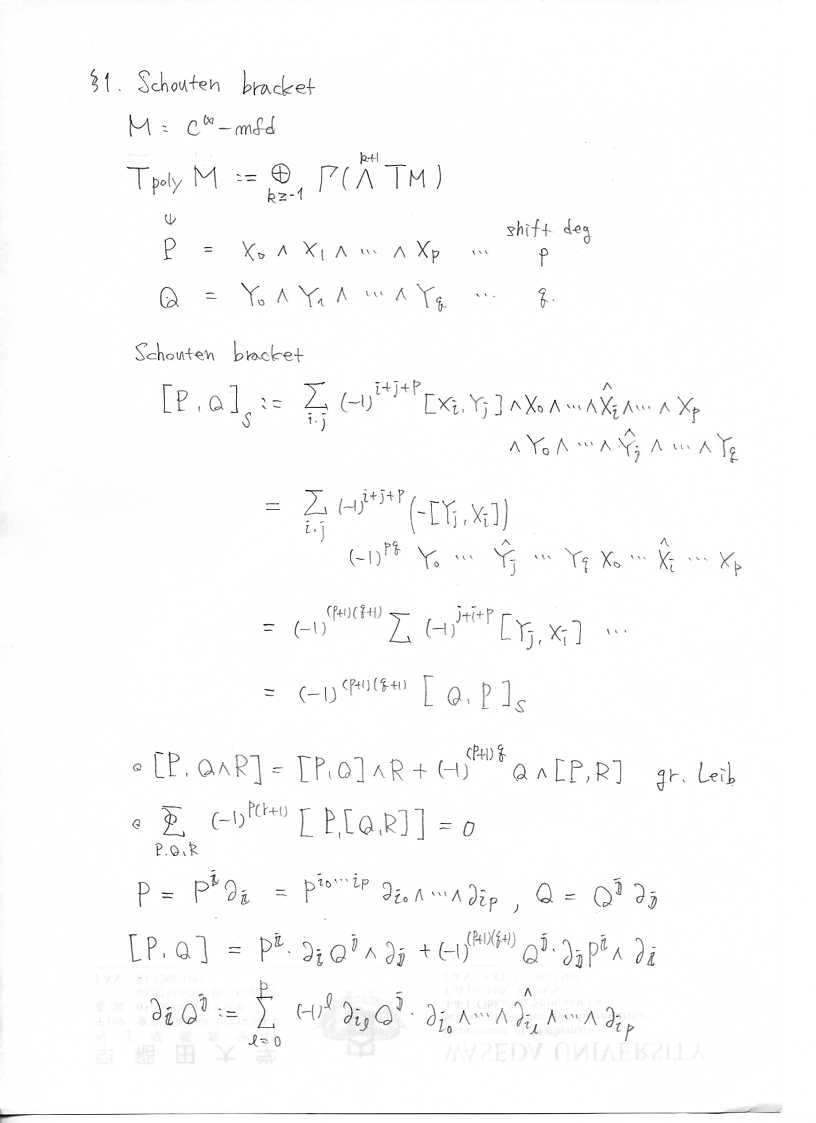 §1. Schouten bracket
M : C^∞-mfd
T_poly M := ⊕_{k≥-1} Γ(∧^{k+1} TM)
∪↓ shift deg
P = X_0 ∧ X_1 ∧ ⋯ ∧ X_p ⋯ p
Q = Y_0 ∧ Y_1 ∧ ⋯ ∧ Y_q ⋯ q.
Schouten bracket
[P, Q]_S := Σ_{i,j} (-1)^{i+j+p} [X_i, Y_j] ∧ X_0 ∧ ⋯ ∧ \hat{X_i} ∧ ⋯ ∧ X_p
∧ Y_0 ∧ ⋯ ∧ \hat{Y_j} ∧ ⋯ ∧ Y_q
= Σ_{i,j} (-1)^{i+j+p} (-[Y_j, X_i])
(-1)^{pq} Y_0 ⋯ \hat{Y_j} ⋯ Y_q X_0 ⋯ \hat{X_i} ⋯ X_p
= (-1)^{(p+1)(q+1)} Σ (-1)^{j+i+p} [Y_j, X_i] ⋯
= (-1)^{(p+1)(q+1)} [Q, P]_S
∘ [P, Q∧R] = [P, Q] ∧ R + (-1)^{(p+1)q} Q ∧ [P, R] gr. Leib
∘ Σ_{P,Q,R} (-1)^{p(r+1)} [P, [Q, R]] = 0
P = P^i ∂_i = P^{i_0⋯i_p} ∂_{i_0} ∧ ⋯ ∧ ∂_{i_p}, Q = Q^j ∂_j
[P, Q] = P^i · ∂_i Q^j ∧ ∂_j + (-1)^{(p+1)(q+1)} Q^j · ∂_j P^i ∧ ∂_i
∂_i Q^j := Σ_{l=0}^{p} (-1)^l ∂_{i_l} Q^j · ∂_{i_0} ∧ ⋯ ∧ \hat{∂_{i_l}} ∧ ⋯ ∧ ∂_{i_p}
早稲田大学 WASEDA UNIVERSITY